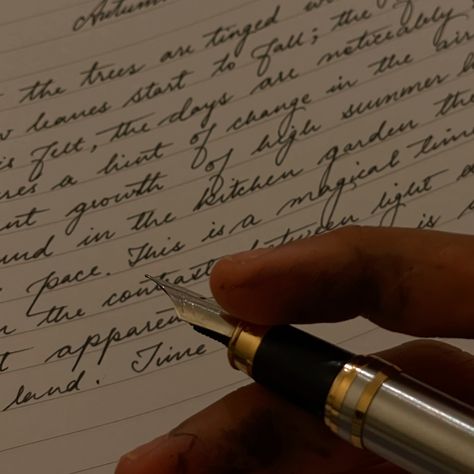 Autumn
the trees are tinged
leaves start to fall; the
is felt, the days are noticeably
a hint of change in the air
growth of high summer
in the kitchen garden
pace. This is a magical time
the between light
apparent is
land. Time